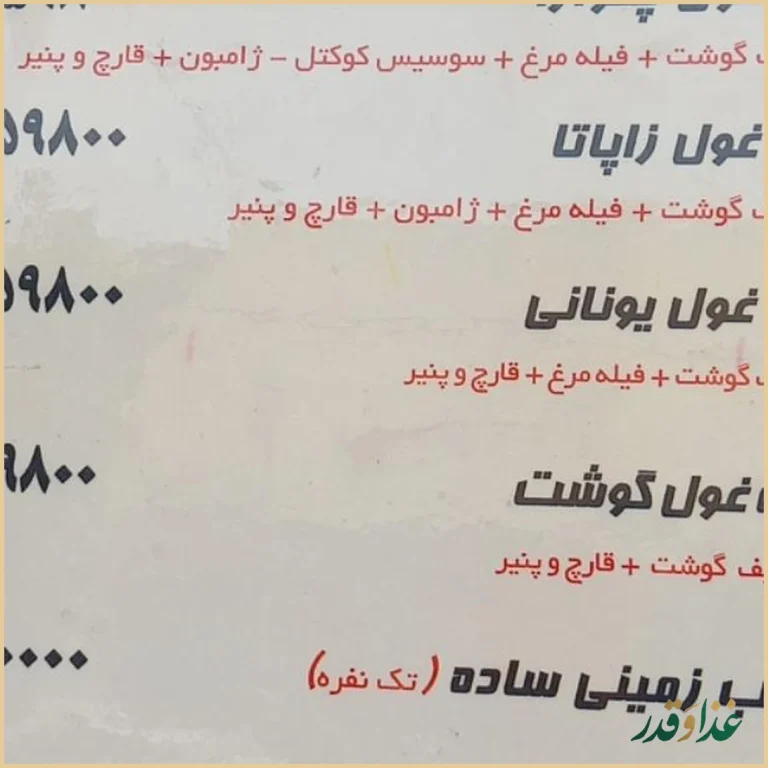 گوشت + فیله مرغ + سوسیس کوکتل – ژامبون + قارچ و پنیر
غول زاپاتا ۵۹۸۰۰
گوشت + فیله مرغ + ژامبون + قارچ و پنیر
غول یونانی ۵۹۸۰۰
گوشت + فیله مرغ + قارچ و پنیر
غول گوشت ۹۸۰۰
گوشت + قارچ و پنیر
زمینی ساده (تک نفره) ۰۰۰۰
غذا و قدر